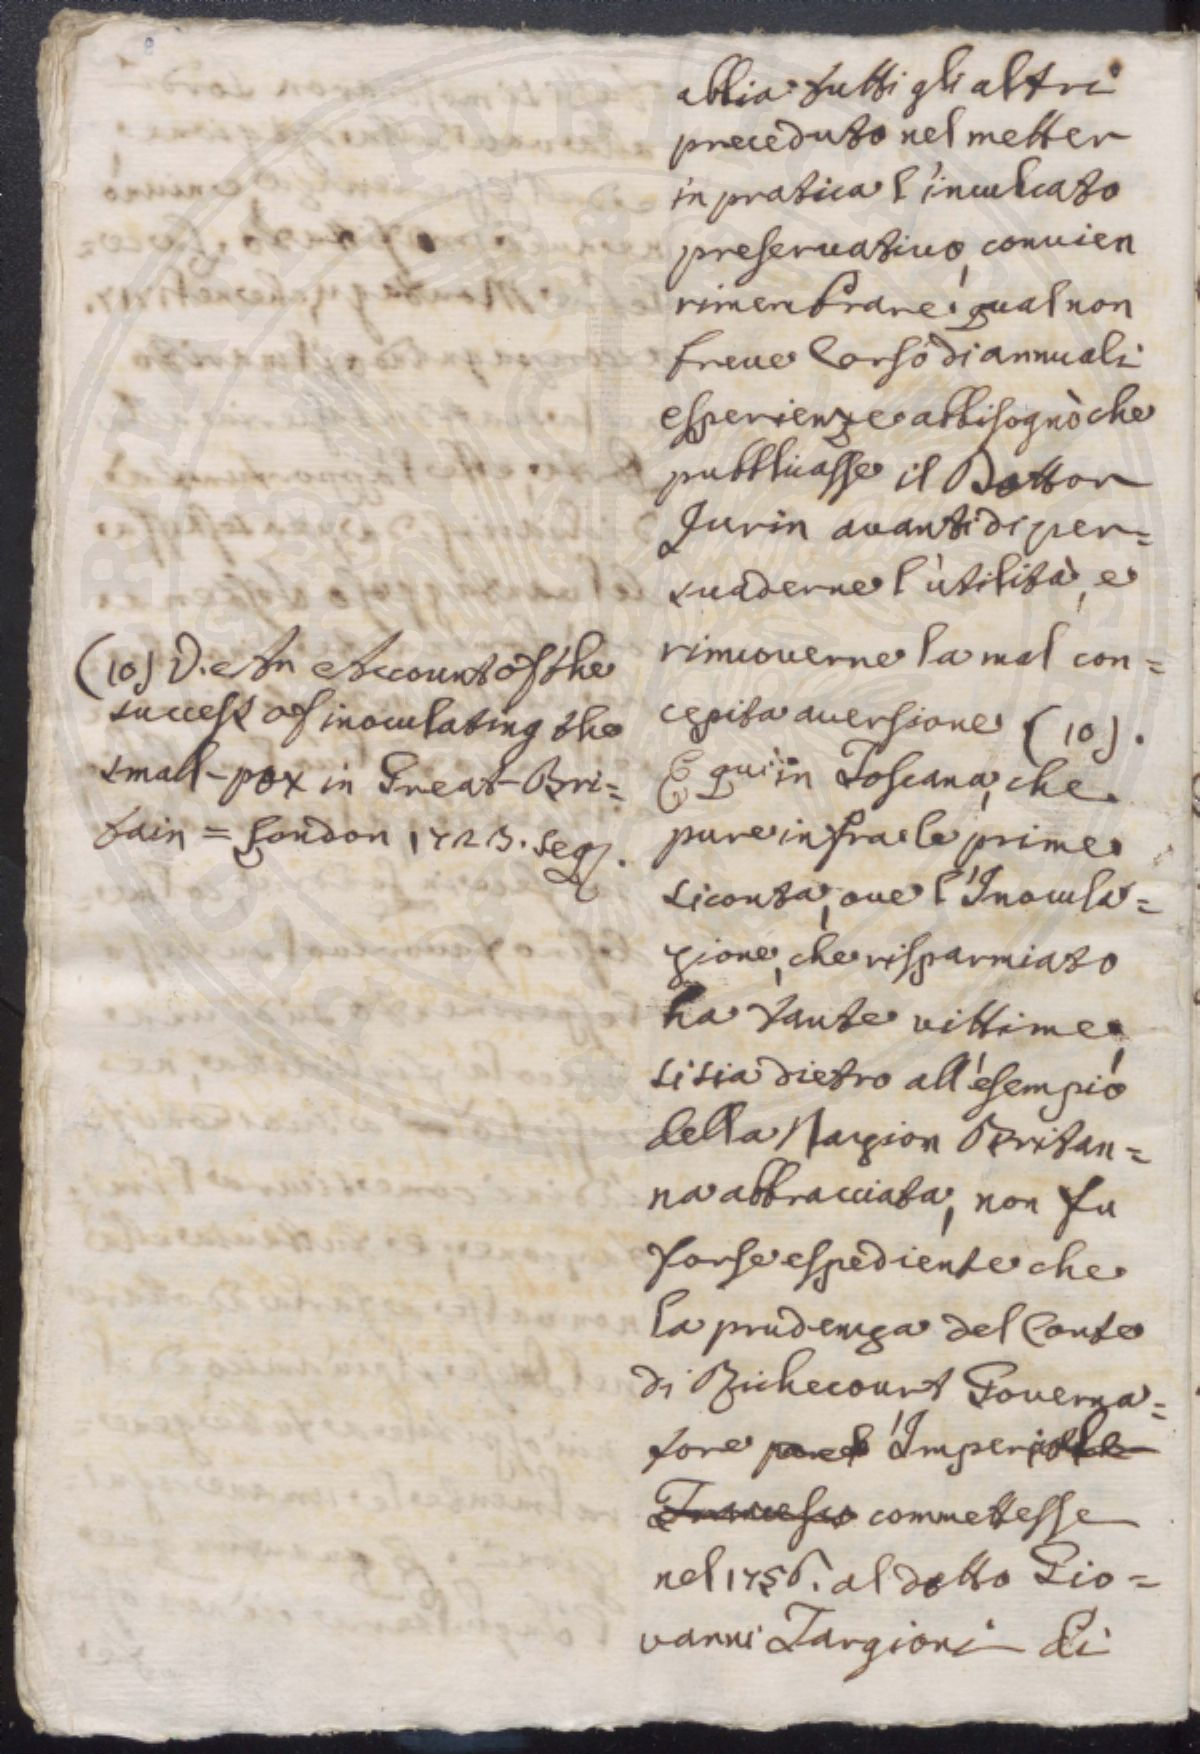 abbia tutti gli altri
preceduto nel metter
in pratica l'inculcato
preservativo, convien
rimembrare, qual non
breve Corso di annuali
esperienze abbisognò che
pubblicasse il Dottor
Jurin avanti di per=
suaderne l'utilità, e
rimuoverne la mal con=
cepita aversione (10).
E qui in Toscana, che
pure infra le prime
si conta, ove l'Inocula=
zione, che risparmiato
ha tante vittime,
si sia dietro all'esempio
della Nazion Britan=
na abbracciata, non fu
forse espediente che
la prudenza del Conte
di Richecourt Governa=
tore l'Imperiale
Francesco commettesse
nel 1756. al dotto Gio=
vanni Targioni di
(10) V. An Account of the
success of inoculating the
small-pox in Great-Bri=
tain = London 1723. seq.